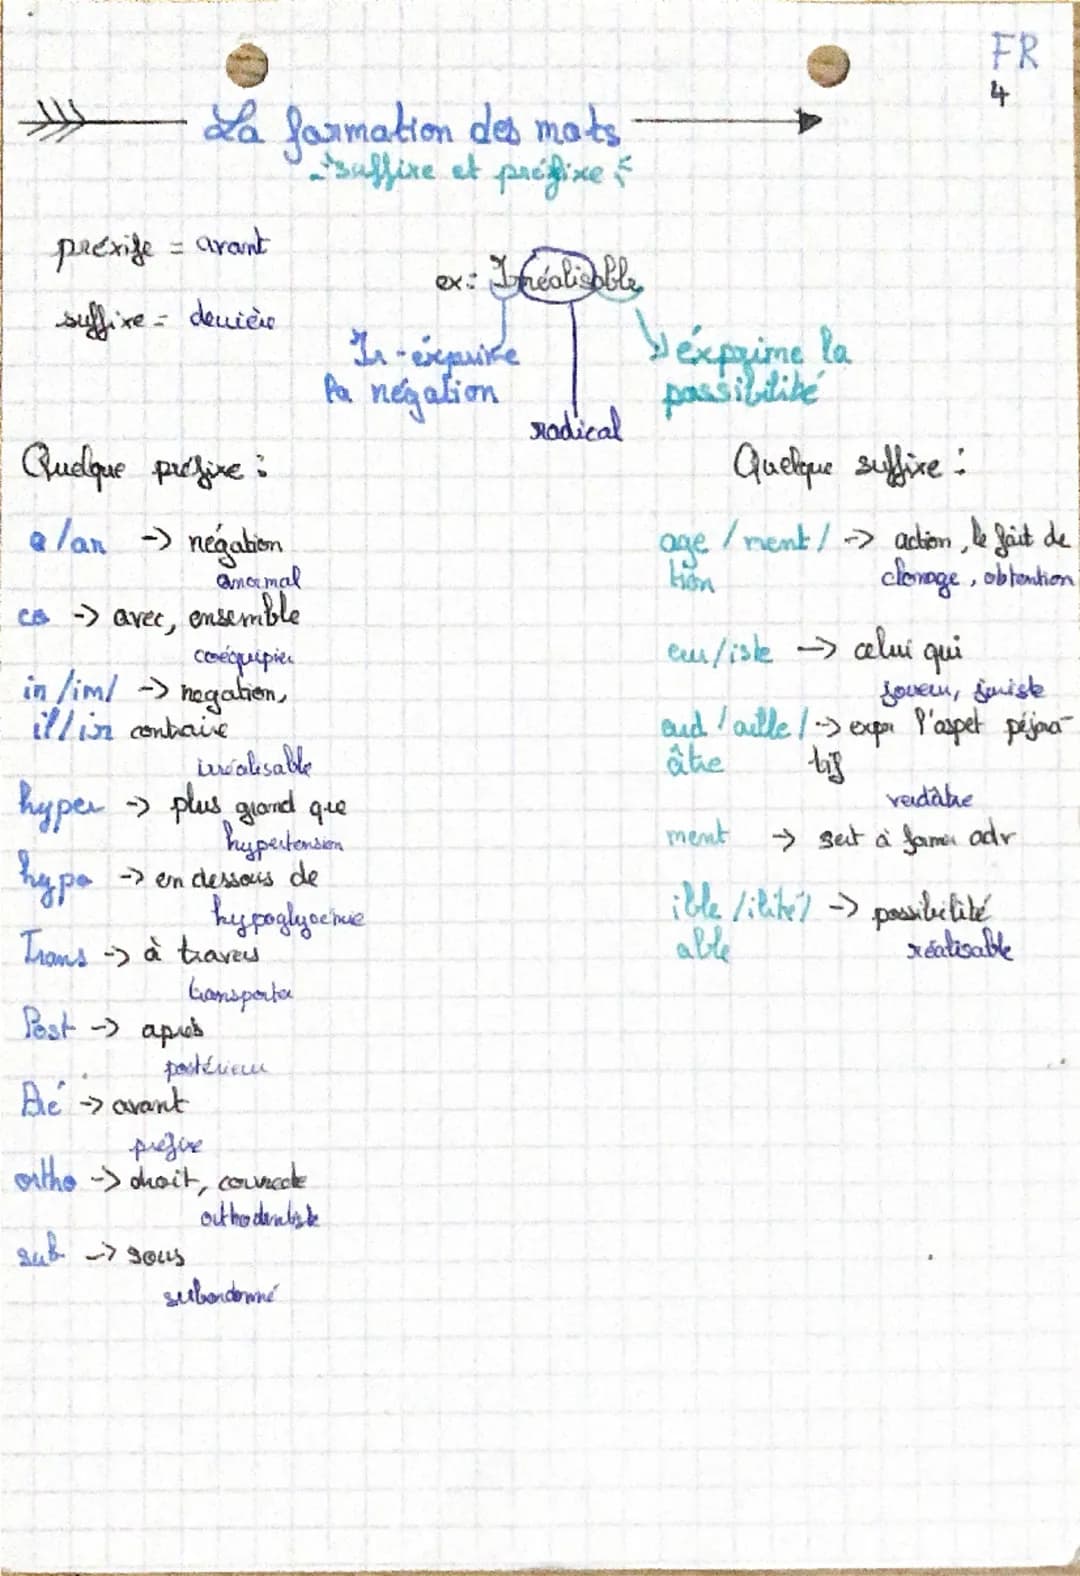 FR
4
La formation des mots
suffixe et préfixe
préxife = avant
suffixe = derrière
ex: Irréalisable
Ir - éxprime
la négation
radical
éxprime la
possibilité
Quelque préfixe :
a/an -> négation
anormal
co -> avec, ensemble
coéquipier
in/im/ -> negation,
il/ir contraire
irréalisable
hyper -> plus grand que
hypertension
hypo -> en dessous de
hypoglycémie
Trans -> à travers
transporter
Post -> après
postérieur
Pré -> avant
préfixe
ortho -> droit, correcte
orthodentiste
sub -> sous
subordonné
Quelque suffixe :
age / ment / -> action, le fait de
tion
clonage, obtention
eur/iste -> celui qui
joueur, juriste
aud / aille / -> expr l'aspet péjora-
âtre tif
verdâtre
ment -> sert à former adv
ible / ilité / -> possibilité
able
réalisable